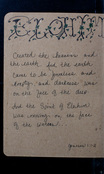 Created the heavens and
the earth. but the earth
came to be formless and
empty and darkness was
on the face of the deep
And the Spirit of Elohim
was moving on the face
of the waters